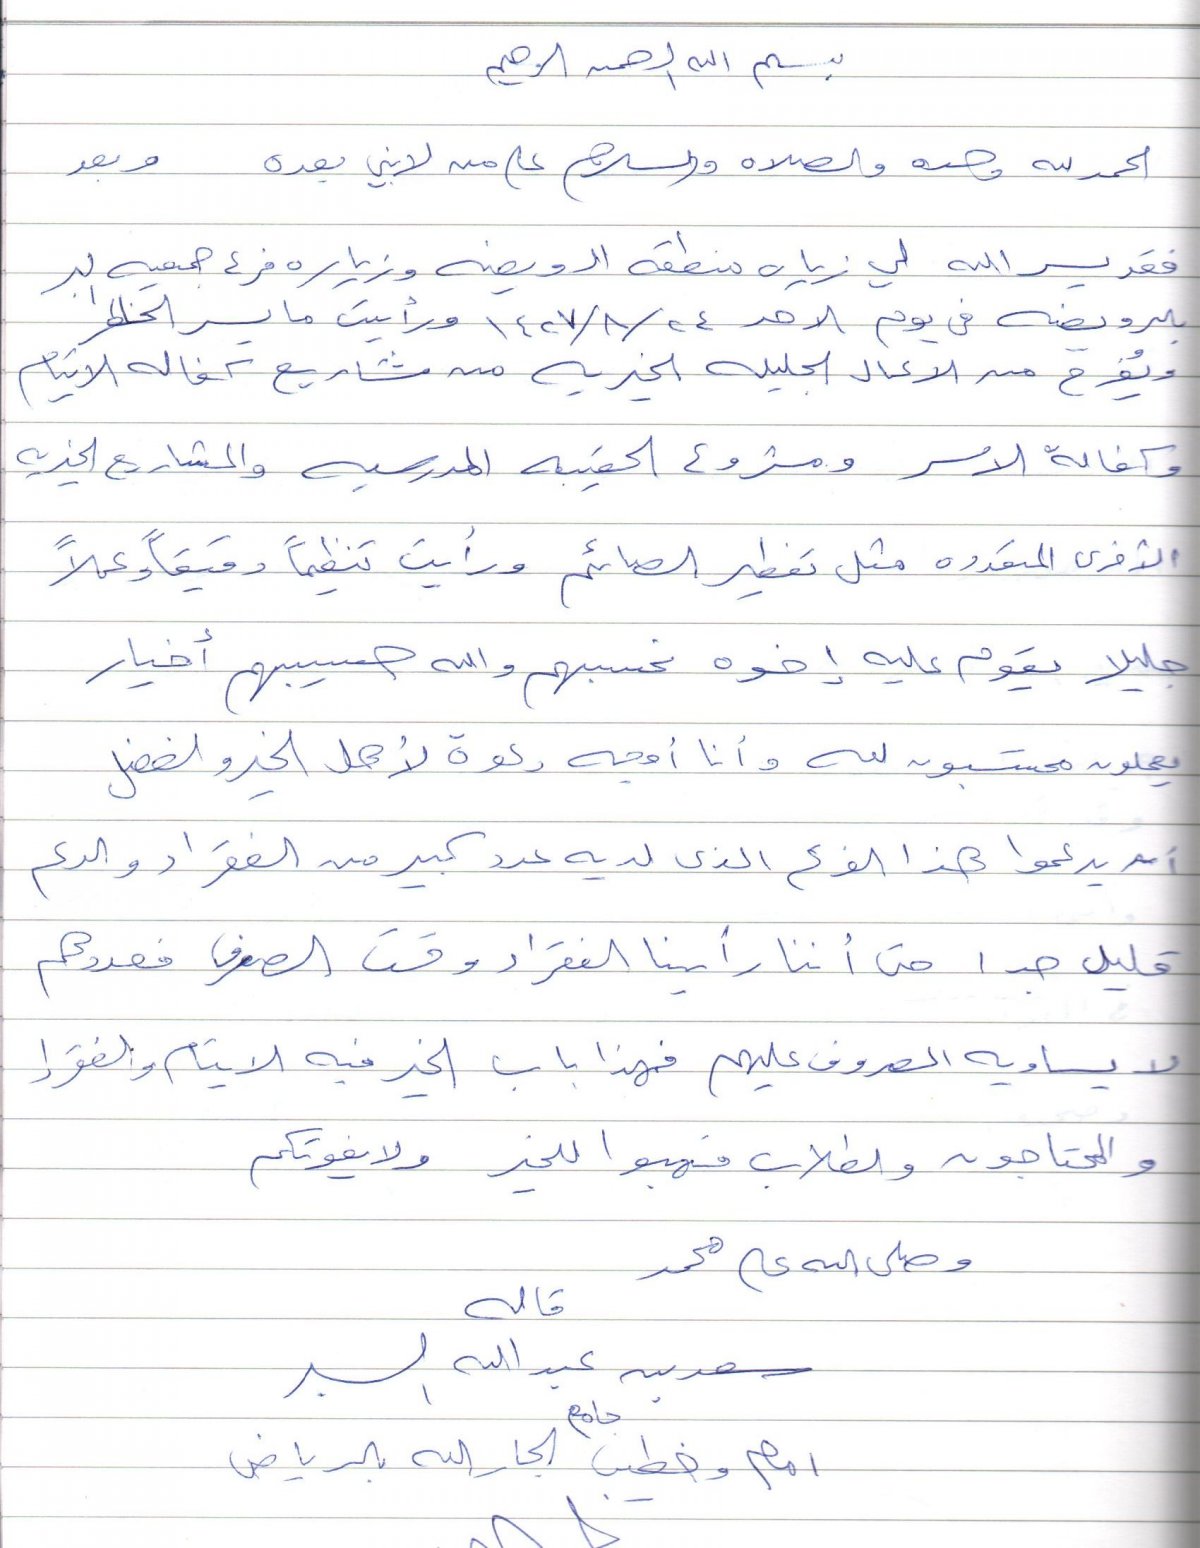 بسم الله الرحمن الرحيم
الحمد لله وحده والصلاه والسلام على من لا نبي بعده وبعد
فقد يسر الله لي زياره منطقه الرويضه وزياره فرع جمعيه البر
بالرويضه في يوم الاحد ١٤٢٧/٨/٢٤ ورأيت ما يسر الخاطر
ويُفرح من الاعمال الجليله الخيريه من مشاريع كفاله الايتام
وكفالة الاسر ومشروع الحقيبه المدرسيه والمشاريع الخيريه
الأخرى المتعدده مثل تفطير الصائم ورأيت تنظيماً دقيقاً وعملاً
جليلا يقوم عليه إخوه نحسبهم والله حسيبهم أخيار
يعملون محتسبون لله وأنا أوجه دعوة لأهل الخير والفضل
أن يدعموا هذا الفرع الذى لديه عدد كبير من الفقراء والدعم
قليل جدا حتى أننا رأينا الفقراء وقت الصرف فعددهم
لا يساويه المصروف عليهم فهذا باب الخير فيه الايتام والفقراء
والمحتاجون والطلاب فهبوا للخير ولا يفوتكم
وصلى الله على محمد
قاله
سعد بن عبدالله السبر
امام وخطيب جامع الجارالله بالرياض